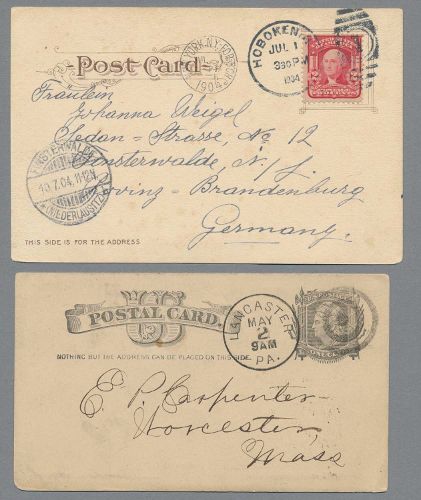 Post Card.
NEW YORK, N.Y. FOREIGN
1904
HOBOKEN, N.
JUL 1
330 PM
1904
2
Fräulein
Johanna Weigel
Sedan-Strasse, No 12
Finsterwalde N/L.
Provinz-Brandenburg
Germany.
FINSTERWALDE
10.7.04. 11-12V.
*(NIEDERLAUSITZ)
THIS SIDE IS FOR THE ADDRESS
US
POSTAL CARD.
NOTHING BUT THE ADDRESS CAN BE PLACED ON THIS SIDE.
LANCASTER
MAY
2
9AM
PA.
E. P. Carpenter
Worcester,
Mass